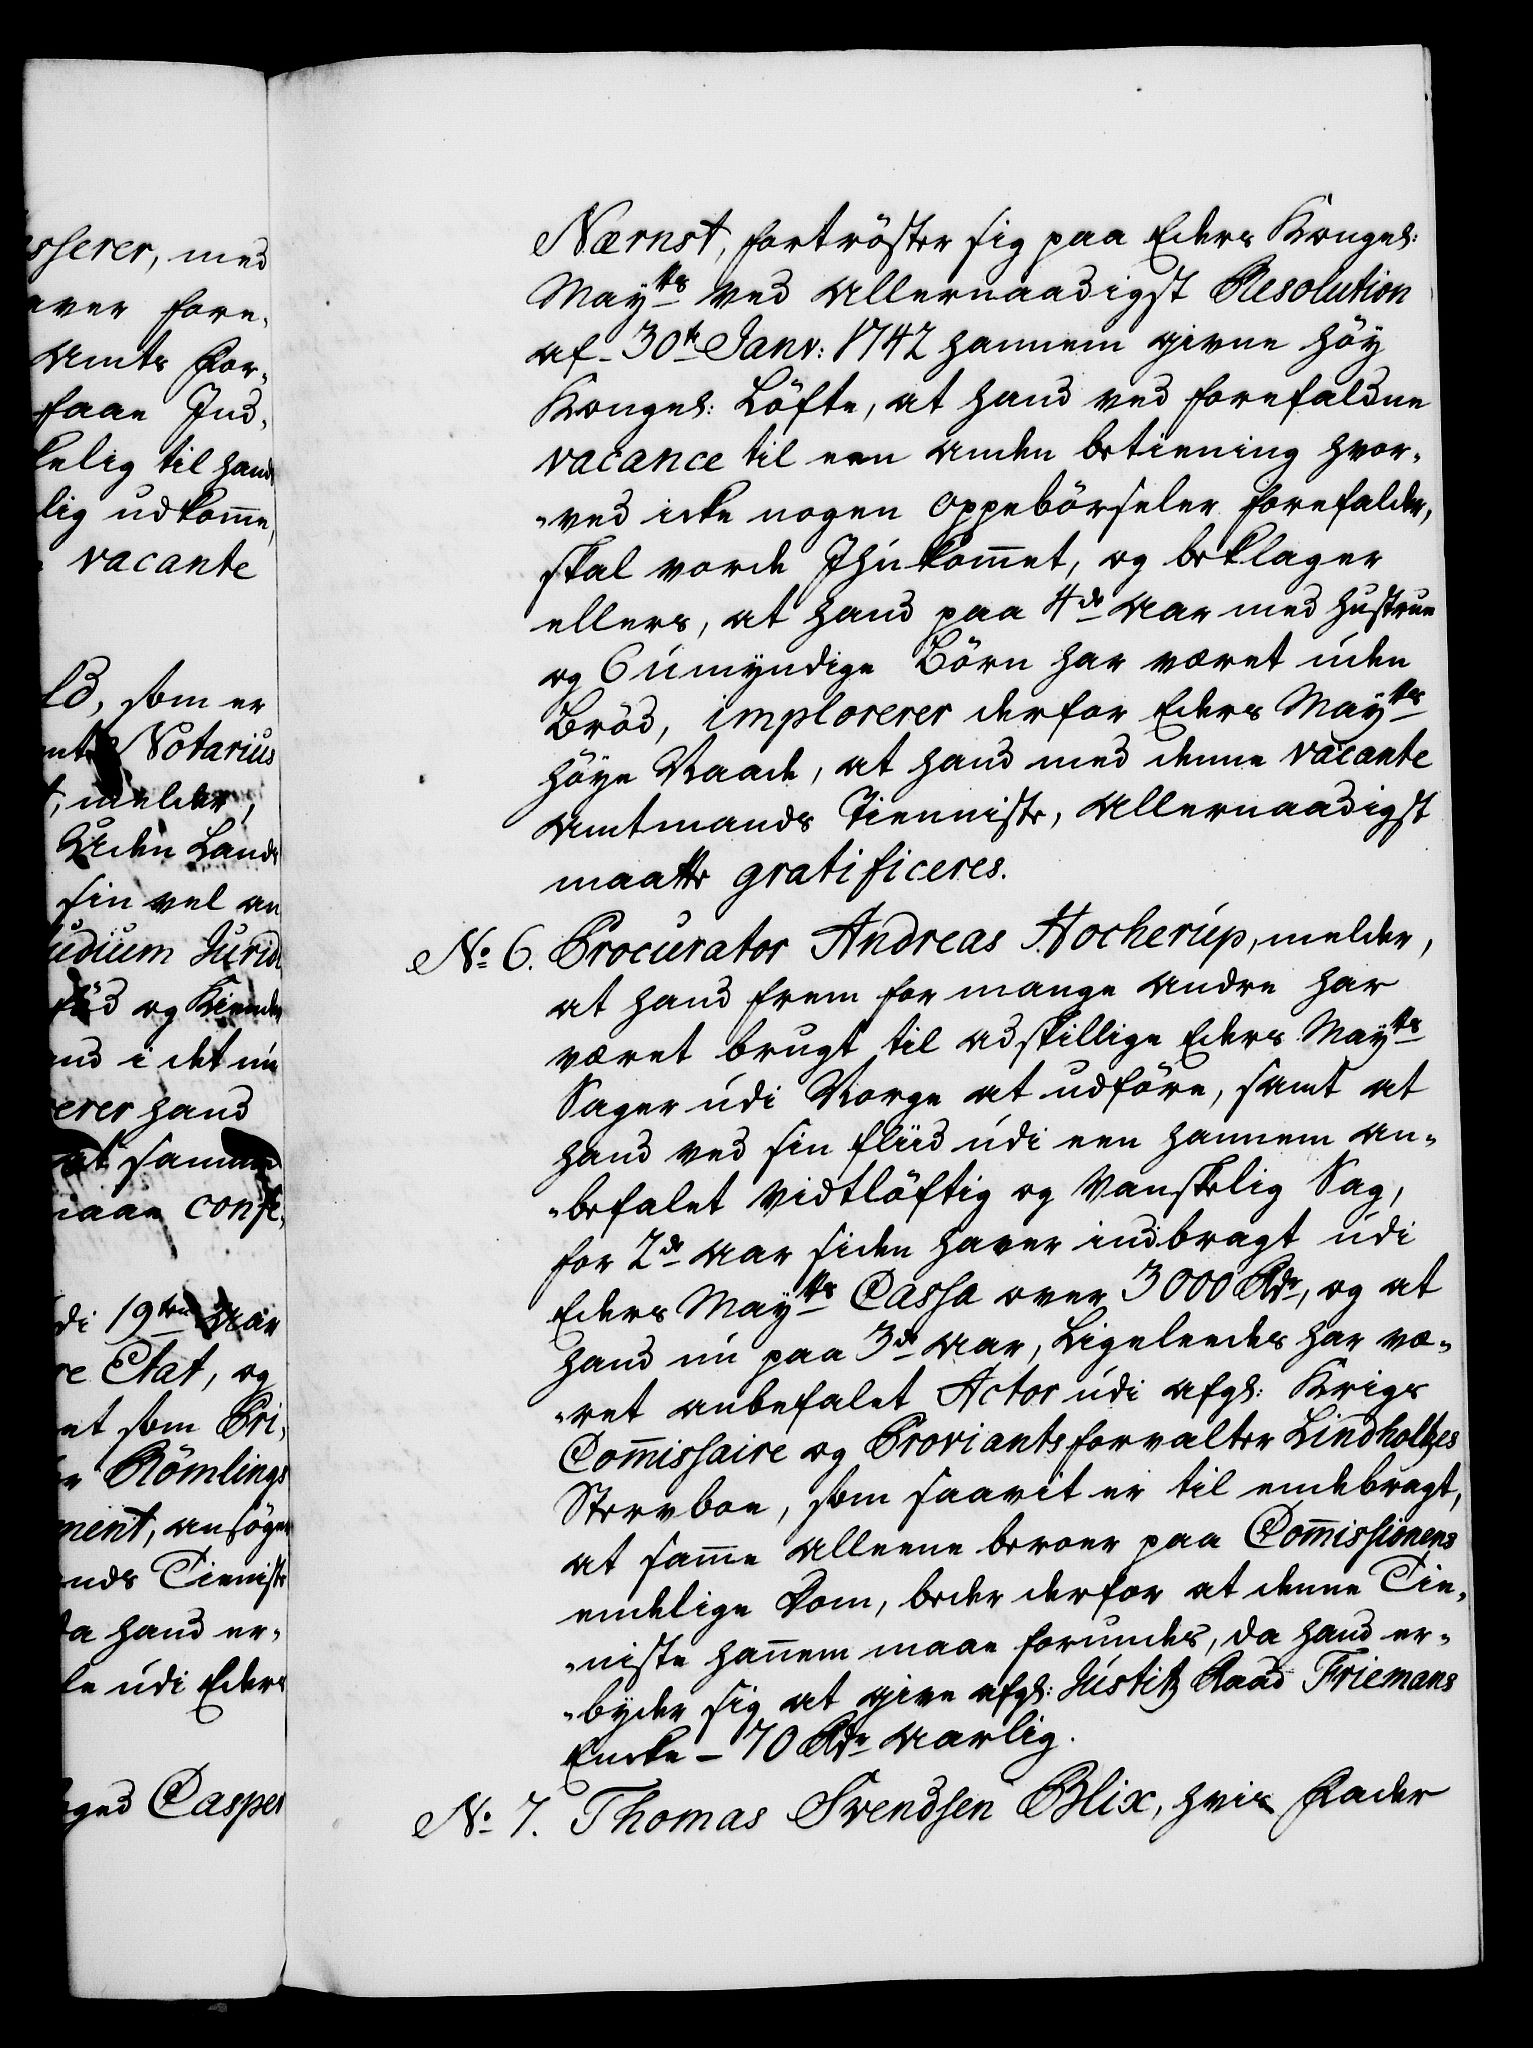 sserer, med
aver fore-
Amts For-
faae Ind-
kelig til hand
lig udkome,
vacante
ld, som er
Notarius
melder,
Uden Lands
sin vel an
udium Jurid
og Kiende
nd i det nu
erer hand
at samme
maae confe-
di 19ten Aar
re Etat, og
et som Pri-
Römlings
ment, ansöger
nds Tieniste
da hand er-
le udi Eders
Casper
Nærnst, fortröster sig paa Eders Kongel:
Mayts ved Allernaadigst Resolution
af 30te Janv: 1742 hannem givne höy
Kongel: Löfte, at hand ved forefaldne
vacance til een anden betiening hvor-
-ved icke nogen Oppebörseler forefalder,
skal vorde Ihukomet, og beklager
ellers, at hand paa 4de Aar med hustrue
og 6 umyndige Börn har været uden
Bröd, implorerer derfor Eders Mayts
höye Naade, at hand med denne vacante
Amtmands Tienniste, Allernaadigst
maatte gratificeres.
No 6. Procurator Andreas Hocherup, melder,
at hand frem for mange andre har
været brugt til adskillige Eders Mayts
Sager udi Norge at udföre, samt at
hand ved sin fliid udi een hannem an-
-befalet Vidtlöftig og Vanskelig Sag,
for 2de Aar siden haver indbragt udi
Eders Mayts Cassa over 3000 Rdr, og at
hand nu paa 3de Aar, Ligeleedes har væ-
-ret anbefalet Actor udi afgl: Krigs
Comissaire og Proviantsforvalter Lindholtzes
Stervboe, som saavit er til endebragt,
at same alleene beroer paa Comissionens
endelige Dom, beder derfor at denne Tie-
-niste hanem maae forundes, da hand er-
-byder sig at give afgl: Justitz Raad Friemans
Encke - 70 Rdr Aarlig.
No 7. Thomas Svendsen Blix, hvis Fader